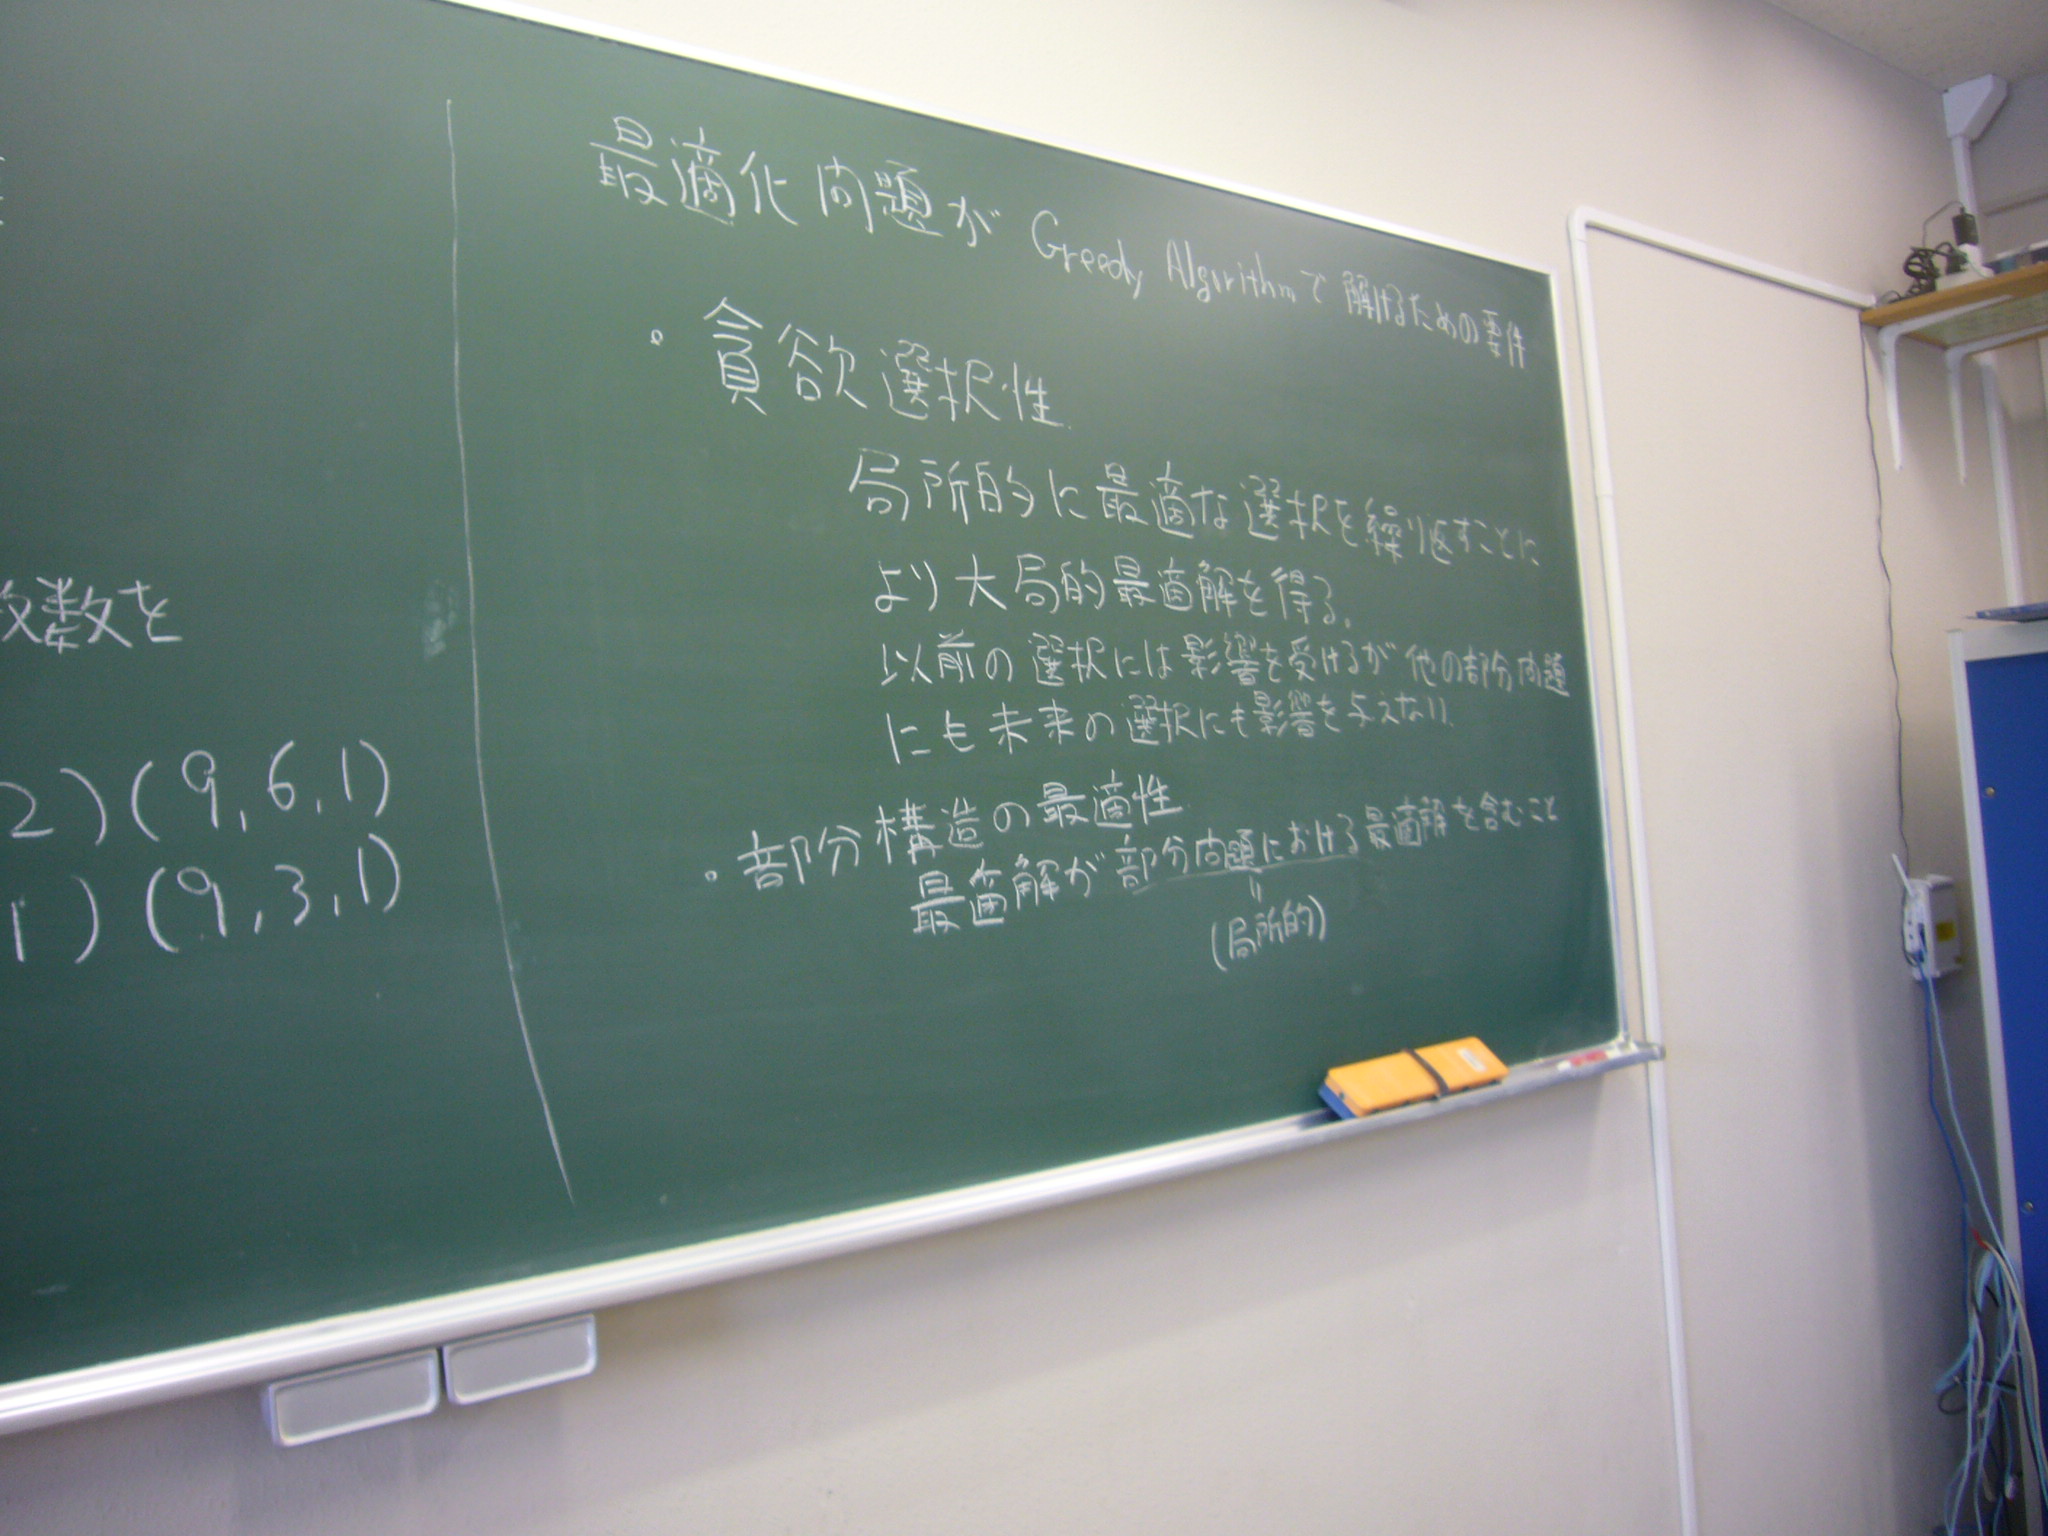 数を
2) (9, 6, 1)
1) (9, 3, 1)
最適化問題が Greedy Algorithmで 解けるための要件
・貪欲選択性
局所的に最適な選択を繰り返すことに
より大局的最適解を得る.
以前の選択には影響を受けるが他の部分問題
にも未来の選択にも影響を与えない.
・部分構造の最適性
最適解が部分問題における最適解を含むこと
〃
(局所的)